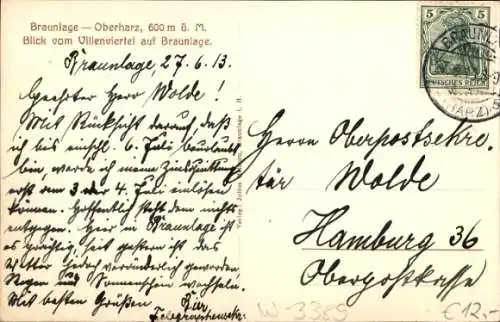 Braunlage — Oberharz, 600 m ü. M.
Blick vom Villenviertel auf Braunlage.
Braunlage, 27.6.13.
Geehrter Herr Wolde!
Mit Rücksicht darauf, daß
ich bis einschl. 6. Juli beurlaubt
bin, werde ich meine
erst am 3 oder 4. Juli einlösen
können. Hoffentlich steht dem nichts
entgegen. Hier in Braunlage ist
es prächtig, seit gestern ist das
Wetter jedoch veränderlich geworden,
Regen und Sonnenschein wechseln.
Mit besten Grüßen
5
5
DEUTSCHES REICH
BRAUNL
(HARZ)
Herrn Oberpostsekre-
tär Wolde
Hamburg 36
Oberpostkasse
W 3389
€12,-